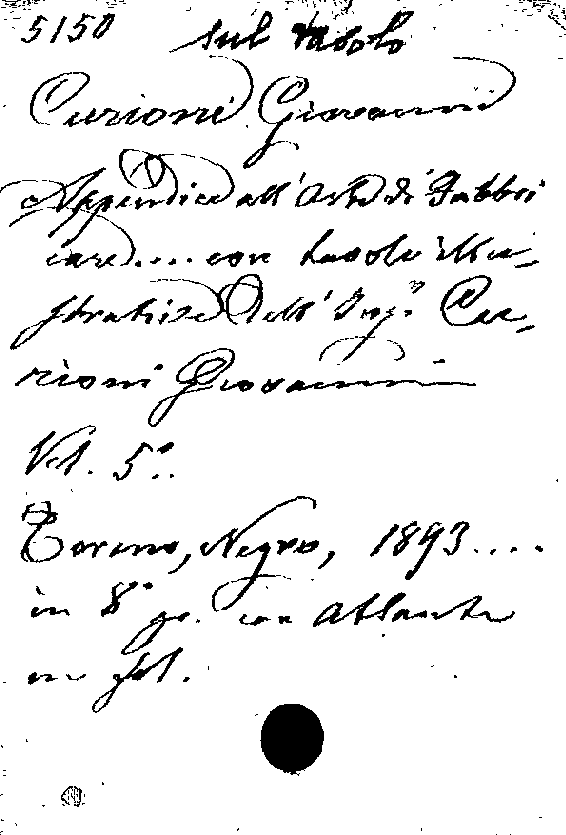 5150 sul tavolo
Curioni Giovanni
Appendice all'Arte di Fabbri
care.... con tavole illu-
strative dell'Ing.re Cu-
rioni Giovanni
Vol. 5°.
Torino, Negro, 1893....
in 8° gr. con atlante
in fol.